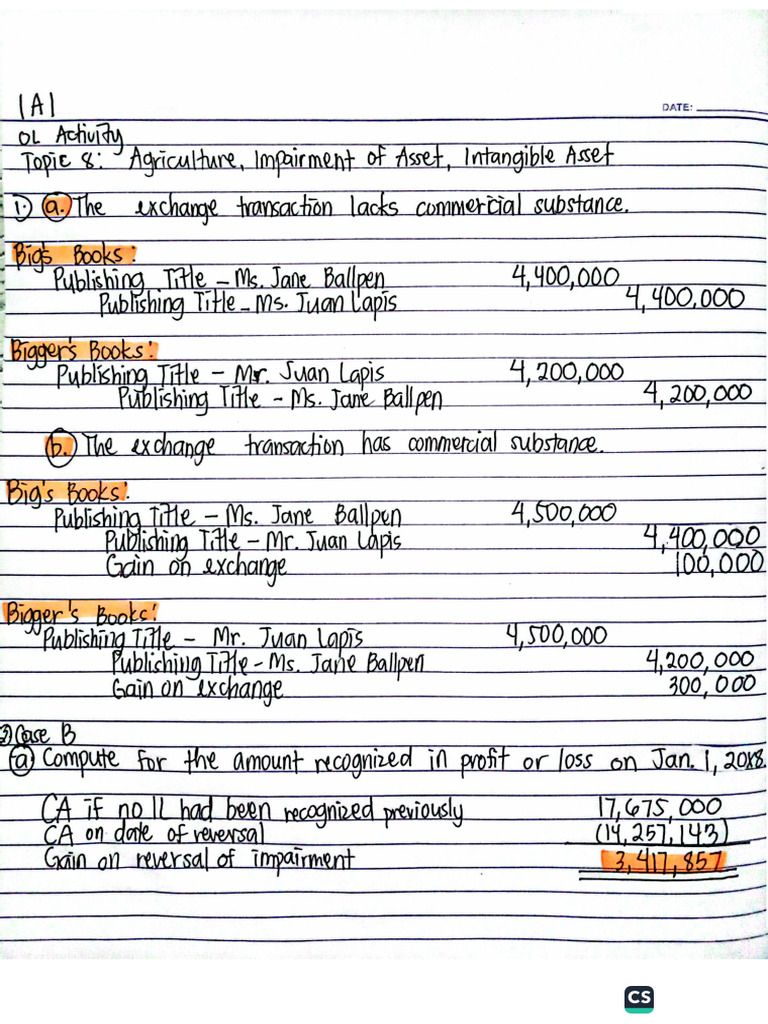 IA1
DATE:
OL Activity
Topic 8: Agriculture, Impairment of Asset, Intangible Asset
1. a. The exchange transaction lacks commercial substance.
Big's Books:
Publishing Title - Ms. Jane Ballpen 4,400,000
Publishing Title - Ms. Juan Lapis 4,400,000
Bigger's Books:
Publishing Title - Mr. Juan Lapis 4,200,000
Publishing Title - Ms. Jane Ballpen 4,200,000
b. The exchange transaction has commercial substance.
Big's Books:
Publishing Title - Ms. Jane Ballpen 4,500,000
Publishing Title - Mr. Juan Lapis 4,400,000
Gain on exchange 100,000
Bigger's Books:
Publishing Title - Mr. Juan Lapis 4,500,000
Publishing Title - Ms. Jane Ballpen 4,200,000
Gain on exchange 300,000
2) Case B
a Compute for the amount recognized in profit or loss on Jan. 1, 20x8.
CA if no IL had been recognized previously 17,675,000
CA on date of reversal (14,257,143)
Gain on reversal of impairment 3,417,857
CS